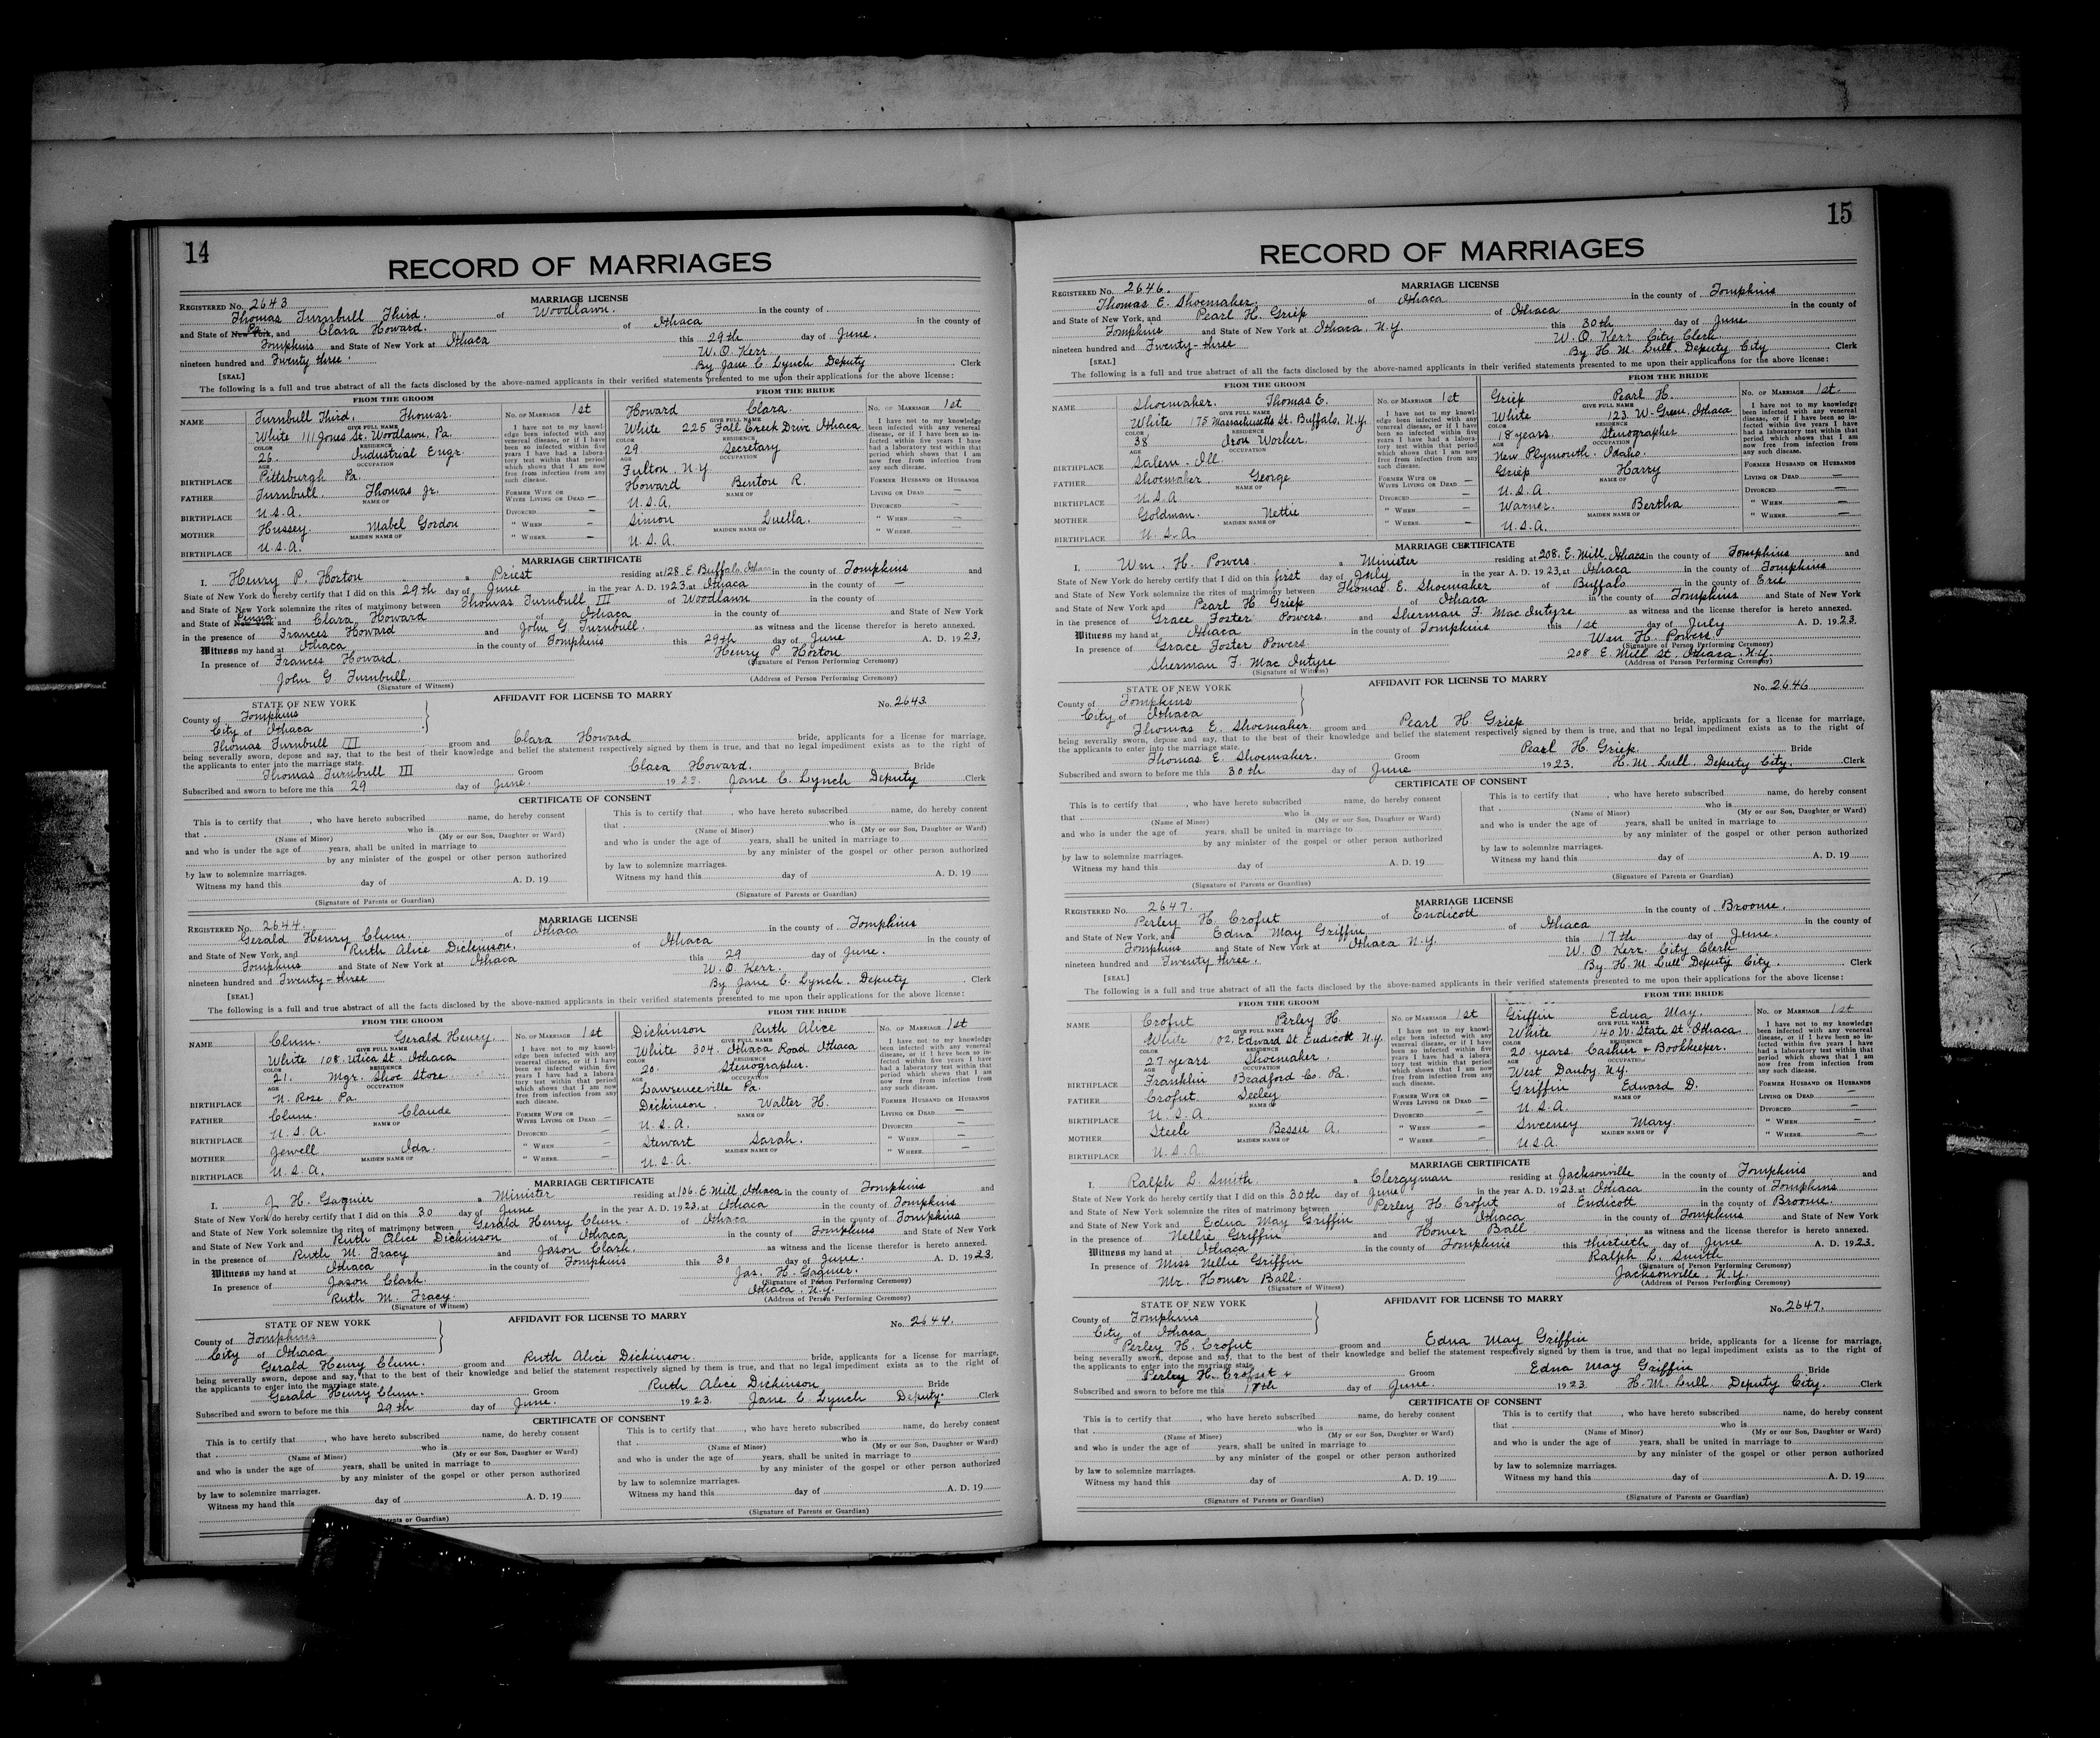 14
RECORD OF MARRIAGES
MARRIAGE LICENSE
REGISTERED No. 2643
Thomas Turnbull Third. of Woodlawn. in the county of
and State of New York, Pa. and Clara Howard. of Ithaca in the county of
Tompkins and State of New York at Ithaca this 29th day of June.
nineteen hundred and Twenty three. W. O. Kerr
[SEAL] By Jane C. Lynch Deputy Clerk
The following is a full and true abstract of all the facts disclosed by the above-named applicants in their verified statements presented to me upon their applications for the above license:
FROM THE GROOM
NAME Turnbull Third, Thomas.
GIVE FULL NAME
White 111 Jones St. Woodlawn, Pa.
COLOR RESIDENCE
26. Industrial Engr.
AGE OCCUPATION
BIRTHPLACE Pittsburgh Pa.
FATHER Turnbull. Thomas Jr.
NAME OF
BIRTHPLACE U.S.A.
MOTHER Hussey. Mabel Gordon
MAIDEN NAME OF
BIRTHPLACE U.S.A.
No. OF MARRIAGE 1st
I have not to my knowledge been infected with any venereal disease, or if I have been so infected within five years I have had a laboratory test within that period which shows that I am now free from infection from any such disease.
FORMER WIFE OR
WIVES LIVING OR DEAD —
DIVORCED —
" WHEN. —
" WHERE. —
FROM THE BRIDE
Howard Clara.
GIVE FULL NAME
White 225 Fall Creek Drive Ithaca
COLOR RESIDENCE
29. Secretary
AGE OCCUPATION
Fulton, N.Y.
Howard Benton R.
NAME OF
U.S.A.
Simon Luella.
MAIDEN NAME OF
U.S.A.
No. OF MARRIAGE 1st
I have not to my knowledge been infected with any venereal disease, or if I have been so infected within five years I have had a laboratory test within that period which shows that I am now free from infection from any such disease.
FORMER HUSBAND OR HUSBANDS
LIVING OR DEAD —
DIVORCED —
" WHEN. —
" WHERE. —
MARRIAGE CERTIFICATE
I. Henry P. Horton a Priest residing at 128. E. Buffalo, Ithaca in the county of Tompkins and
State of New York do hereby certify that I did on this 29th day of June in the year A. D. 1923 at Ithaca in the county of —
and State of New York solemnize the rites of matrimony between Thomas Turnbull III of Woodlawn in the county of
and State of New York Penna and Clara Howard of Ithaca in the county of and State of New York
in the presence of Frances Howard and John G. Turnbull. as witness and the license therefor is hereto annexed.
Witness my hand at Ithaca in the county of Tompkins this 29th day of June A. D. 1923.
In presence of Frances Howard. Henry P. Horton
(Signature of Person Performing Ceremony)
John G. Turnbull.
(Signature of Witness) (Address of Person Performing Ceremony)
AFFIDAVIT FOR LICENSE TO MARRY
STATE OF NEW YORK No. 2643
County of Tompkins
City of Ithaca
Thomas Turnbull III groom and Clara Howard bride, applicants for a license for marriage,
being severally sworn, depose and say, that to the best of their knowledge and belief the statement respectively signed by them is true, and that no legal impediment exists as to the right of
the applicants to enter into the marriage state.
Thomas Turnbull III Groom Clara Howard. Bride
Subscribed and sworn to before me this 29 day of June. 1923. Jane C. Lynch Deputy Clerk
CERTIFICATE OF CONSENT
This is to certify that, who have hereto subscribed name, do hereby consent
that who is
(Name of Minor) (My or our Son, Daughter or Ward)
and who is under the age of years, shall be united in marriage to
by any minister of the gospel or other person authorized
by law to solemnize marriages.
Witness my hand this day of A. D. 19
(Signature of Parents or Guardian)
This is to certify that, who have hereto subscribed name, do hereby consent
that who is
(Name of Minor) (My or our Son, Daughter or Ward)
and who is under the age of years, shall be united in marriage to
by any minister of the gospel or other person authorized
by law to solemnize marriages.
Witness my hand this day of A. D. 19
(Signature of Parents or Guardian)
MARRIAGE LICENSE
REGISTERED No. 2644.
Gerald Henry Clum. of Ithaca in the county of Tompkins
and State of New York, and Ruth Alice Dickinson. of Ithaca in the county of
Tompkins and State of New York at Ithaca this 29 day of June.
nineteen hundred and Twenty-three W. O. Kerr.
[SEAL] By Jane C. Lynch. Deputy Clerk
The following is a full and true abstract of all the facts disclosed by the above-named applicants in their verified statements presented to me upon their applications for the above license:
FROM THE GROOM
NAME Clum. Gerald Henry.
GIVE FULL NAME
White 108. Utica St. Ithaca
COLOR RESIDENCE
21. Mgr. Shoe Store
AGE OCCUPATION
BIRTHPLACE N. Rose Pa.
FATHER Clum. Claude
NAME OF
BIRTHPLACE U.S.A.
MOTHER Jewell Ida.
MAIDEN NAME OF
BIRTHPLACE U.S.A.
No. OF MARRIAGE 1st
I have not to my knowledge been infected with any venereal disease, or if I have been so infected within five years I have had a laboratory test within that period which shows that I am now free from infection from any such disease.
FORMER WIFE OR
WIVES LIVING OR DEAD —
DIVORCED —
" WHEN —
" WHERE. —
FROM THE BRIDE
Dickinson Ruth Alice
GIVE FULL NAME
White 304. Ithaca Road Ithaca
COLOR RESIDENCE
20. Stenographer.
AGE OCCUPATION
Lawrenceville Pa.
Dickinson. Walter H.
NAME OF
U.S.A.
Stewart Sarah.
MAIDEN NAME OF
U.S.A.
No. OF MARRIAGE 1st
I have not to my knowledge been infected with any venereal disease, or if I have been so infected within five years I have had a laboratory test within that period which shows that I am now free from infection from any such disease.
FORMER HUSBAND OR HUSBANDS
LIVING OR DEAD —
DIVORCED —
" WHEN —
" WHERE. —
MARRIAGE CERTIFICATE
I. J. H. Gagnier a Minister residing at 106. E. Mill, Ithaca in the county of Tompkins and
State of New York do hereby certify that I did on this 30 day of June in the year A. D. 1923. at Ithaca in the county of Tompkins
and State of New York solemnize the rites of matrimony between Gerald Henry Clum. of Ithaca in the county of Tompkins
and State of New York and Ruth Alice Dickinson of Ithaca in the county of Tompkins and State of New York
in the presence of Ruth M. Tracy and Jason Clark. as witness and the license therefor is hereto annexed.
Witness my hand at Ithaca in the county of Tompkins this 30 day of June. A. D. 1923.
In presence of Jason Clark. Jas. H. Gagnier.
(Signature of Person Performing Ceremony)
Ruth M. Tracy. Ithaca. N.Y.
(Signature of Witness) (Address of Person Performing Ceremony)
AFFIDAVIT FOR LICENSE TO MARRY
STATE OF NEW YORK No. 2644.
County of Tompkins
City of Ithaca
Gerald Henry Clum. groom and Ruth Alice Dickinson. bride, applicants for a license for marriage,
being severally sworn, depose and say, that to the best of their knowledge and belief the statement respectively signed by them is true, and that no legal impediment exists as to the right of
the applicants to enter into the marriage state.
Gerald Henry Clum. Groom Ruth Alice Dickinson Bride
Subscribed and sworn to before me this 29th day of June. 1923. Jane C Lynch Deputy. Clerk
CERTIFICATE OF CONSENT
This is to certify that, who have hereto subscribed name, do hereby consent
that who is
(Name of Minor) (My or our Son, Daughter or Ward)
and who is under the age of years, shall be united in marriage to
by any minister of the gospel or other person authorized
by law to solemnize marriages.
Witness my hand this day of A. D. 19
Parents or Guardian)
This is to certify that, who have hereto subscribed name, do hereby consent
that who is
(Name of Minor) (My or our Son, Daughter or Ward)
and who is under the age of years, shall be united in marriage to
by any minister of the gospel or other person authorized
by law to solemnize marriages.
Witness my hand this day of A. D. 19
(Signature of Parents or Guardian)
15
RECORD OF MARRIAGES
MARRIAGE LICENSE
REGISTERED No. 2646.
Thomas E. Shoemaker. of Ithaca in the county of Tompkins
and State of New York, and Pearl H. Griep of Ithaca in the county of
Tompkins and State of New York at Ithaca, N.Y. this 30th day of June
nineteen hundred and Twenty-three W. O. Kerr City Clerk
[SEAL] By H. M. Lull. Deputy City Clerk
The following is a full and true abstract of all the facts disclosed by the above-named applicants in their verified statements presented to me upon their applications for the above license:
FROM THE GROOM
NAME Shoemaker. Thomas E.
GIVE FULL NAME
White 175 Massachusetts St. Buffalo, N.Y.
COLOR RESIDENCE
38 Iron Worker.
AGE OCCUPATION
BIRTHPLACE Salem. Ill.
FATHER Shoemaker George
NAME OF
BIRTHPLACE U.S.A
MOTHER Goldman. Nettie
MAIDEN NAME OF
BIRTHPLACE U.S.A.
No. OF MARRIAGE 1st
I have not to my knowledge been infected with any venereal disease, or if I have been so infected within five years I have had a laboratory test within that period which shows that I am now free from infection from any such disease.
FORMER WIFE OR
WIVES LIVING OR DEAD —
DIVORCED —
" WHEN —
" WHERE. —
FROM THE BRIDE
Griep Pearl H.
GIVE FULL NAME
White 123 W. Green, Ithaca
COLOR RESIDENCE
18 years. Stenographer
AGE OCCUPATION
New Plymouth. Idaho.
Griep Harry
NAME OF
U.S.A.
Warner. Bertha
MAIDEN NAME OF
U.S.A.
No. OF MARRIAGE 1st.
I have not to my knowledge been infected with any venereal disease, or if I have been so infected within five years I have had a laboratory test within that period which shows that I am now free from infection from any such disease.
FORMER HUSBAND OR HUSBANDS
LIVING OR DEAD —
DIVORCED —
" WHEN. —
" WHERE. —
MARRIAGE CERTIFICATE
I. Wm. H. Powers. a Minister residing at 208. E. Mill, Ithaca in the county of Tompkins and
State of New York do hereby certify that I did on this first day of July in the year A. D. 1923, at Ithaca in the county of Tompkins
and State of New York solemnize the rites of matrimony between Thomas E. Shoemaker of Buffalo in the county of Erie
and State of New York and Pearl H. Griep of Ithaca in the county of Tompkins and State of New York
in the presence of Grace Foster Powers. and Sherman F. Mac Intyre as witness and the license therefor is hereto annexed.
Witness my hand at Ithaca in the county of Tompkins this 1st day of July A. D. 1923.
In presence of Grace Foster Powers. Wm H. Powers.
(Signature of Person Performing Ceremony)
Sherman F. Mac Intyre 208 E. Mill St. Ithaca. N.Y.
(Signature of Witness) (Address of Person Performing Ceremony)
AFFIDAVIT FOR LICENSE TO MARRY
STATE OF NEW YORK No. 2646
County of Tompkins
City of Ithaca
Thomas E. Shoemaker. groom and Pearl H. Griep bride, applicants for a license for marriage,
being severally sworn, depose and say, that to the best of their knowledge and belief the statement respectively signed by them is true, and that no legal impediment exists as to the right of
the applicants to enter into the marriage state.
Thomas E. Shoemaker. Groom Pearl H. Griep. Bride
Subscribed and sworn to before me this 30th day of June 1923. H. M. Lull. Deputy City. Clerk
CERTIFICATE OF CONSENT
This is to certify that, who have hereto subscribed name, do hereby consent
that who is
(Name of Minor) (My or our Son, Daughter or Ward)
and who is under the age of years, shall be united in marriage to
by any minister of the gospel or other person authorized
by law to solemnize marriages.
Witness my hand this day of A. D. 19
(Signature of Parents or Guardian)
This is to certify that, who have hereto subscribed name, do hereby consent
that who is
(Name of Minor) (My or our Son, Daughter or Ward)
and who is under the age of years, shall be united in marriage to
by any minister of the gospel or other person authorized
by law to solemnize marriages.
Witness my hand this day of A. D. 19
(Signature of Parents or Guardian)
MARRIAGE LICENSE
REGISTERED No. 2647.
Perley H. Crofut of Endicott in the county of Broome.
and State of New York, and Edna May Griffin of Ithaca in the county of
Tompkins and State of New York at Ithaca N.Y. this 17th day of June.
nineteen hundred and Twenty three. W. O. Kerr. City Clerk
[SEAL] By. H. M. Lull Deputy City. Clerk
The following is a full and true abstract of all the facts disclosed by the above-named applicants in their verified statements presented to me upon their applications for the above license:
FROM THE GROOM
NAME Crofut Perley H.
GIVE FULL NAME
White 02. Edward St Endicott N.Y.
COLOR RESIDENCE
27 years Shoemaker.
AGE OCCUPATION
BIRTHPLACE Franklin Bradford Co. Pa.
FATHER Crofut Seeley
NAME OF
BIRTHPLACE U.S.A.
MOTHER Steele Bessie A.
MAIDEN NAME OF
BIRTHPLACE U.S.A.
No. OF MARRIAGE 1st
I have not to my knowledge been infected with any venereal disease, or if I have been so infected within five years I have had a laboratory test within that period which shows that I am now free from infection from any such disease.
FORMER WIFE OR
WIVES LIVING OR DEAD —
DIVORCED —
" WHEN —
" WHERE. —
FROM THE BRIDE
Griffin Edna May.
GIVE FULL NAME
White 140 W. State St. Ithaca
COLOR RESIDENCE
20. years. Cashier & Bookkeeper.
AGE OCCUPATION
West Danby. N.Y.
Griffin Edward D.
NAME OF
U.S.A.
Sweeney Mary.
MAIDEN NAME OF
U.S.A.
No. OF MARRIAGE 1st
I have not to my knowledge been infected with any venereal disease, or if I have been so infected within five years I have had a laboratory test within that period which shows that I am now free from infection from any such disease.
FORMER HUSBAND OR HUSBANDS
LIVING OR DEAD —
DIVORCED —
" WHEN —
" WHERE. —
MARRIAGE CERTIFICATE
I. Ralph L. Smith. a Clergyman residing at Jacksonville in the county of Tompkins and
State of New York do hereby certify that I did on this 30th day of June in the year A. D. 1923. at Ithaca in the county of Tompkins.
and State of New York solemnize the rites of matrimony between Perley H. Crofut of Endicott in the county of Broome.
and State of New York and Edna May Griffin of Ithaca in the county of Tompkins and State of New York
in the presence of Nellie Griffin and Homer Ball as witness and the license therefor is hereto annexed.
Witness my hand at Ithaca in the county of Tompkins this thirtieth day of June A. D. 1923.
In presence of Miss Nellie Griffin Ralph L. Smith
(Signature of Person Performing Ceremony)
Mr. Homer Ball. Jacksonville, N.Y.
(Signature of Witness) (Address of Person Performing Ceremony)
AFFIDAVIT FOR LICENSE TO MARRY
STATE OF NEW YORK No. 2647.
County of Tompkins
City of Ithaca
Perley H. Crofut groom and Edna May Griffin bride, applicants for a license for marriage,
being severally sworn, depose and say, that to the best of their knowledge and belief the statement respectively signed by them is true, and that no legal impediment exists as to the right of
the applicants to enter into the marriage state.
Perley H. Crofut Groom Edna May Griffin Bride
Subscribed and sworn to before me this 17th day of June. 1923 H. M. Lull. Deputy City. Clerk
CERTIFICATE OF CONSENT
This is to certify that, who have hereto subscribed name, do hereby consent
that who is
(Name of Minor) (My or our Son, Daughter or Ward)
and who is under the age of years, shall be united in marriage to
by any minister of the gospel or other person authorized
by law to solemnize marriages.
Witness my hand this day of A. D. 19
(Signature of Parents or Guardian)
This is to certify that, who have hereto subscribed name, do hereby consent
that who is
(Name of Minor) (My or our Son, Daughter or Ward)
and who is under the age of years, shall be united in marriage to
by any minister of the gospel or other person authorized
by law to solemnize marriages.
Witness my hand this day of A. D. 19
(Signature of Parents or Guardian)